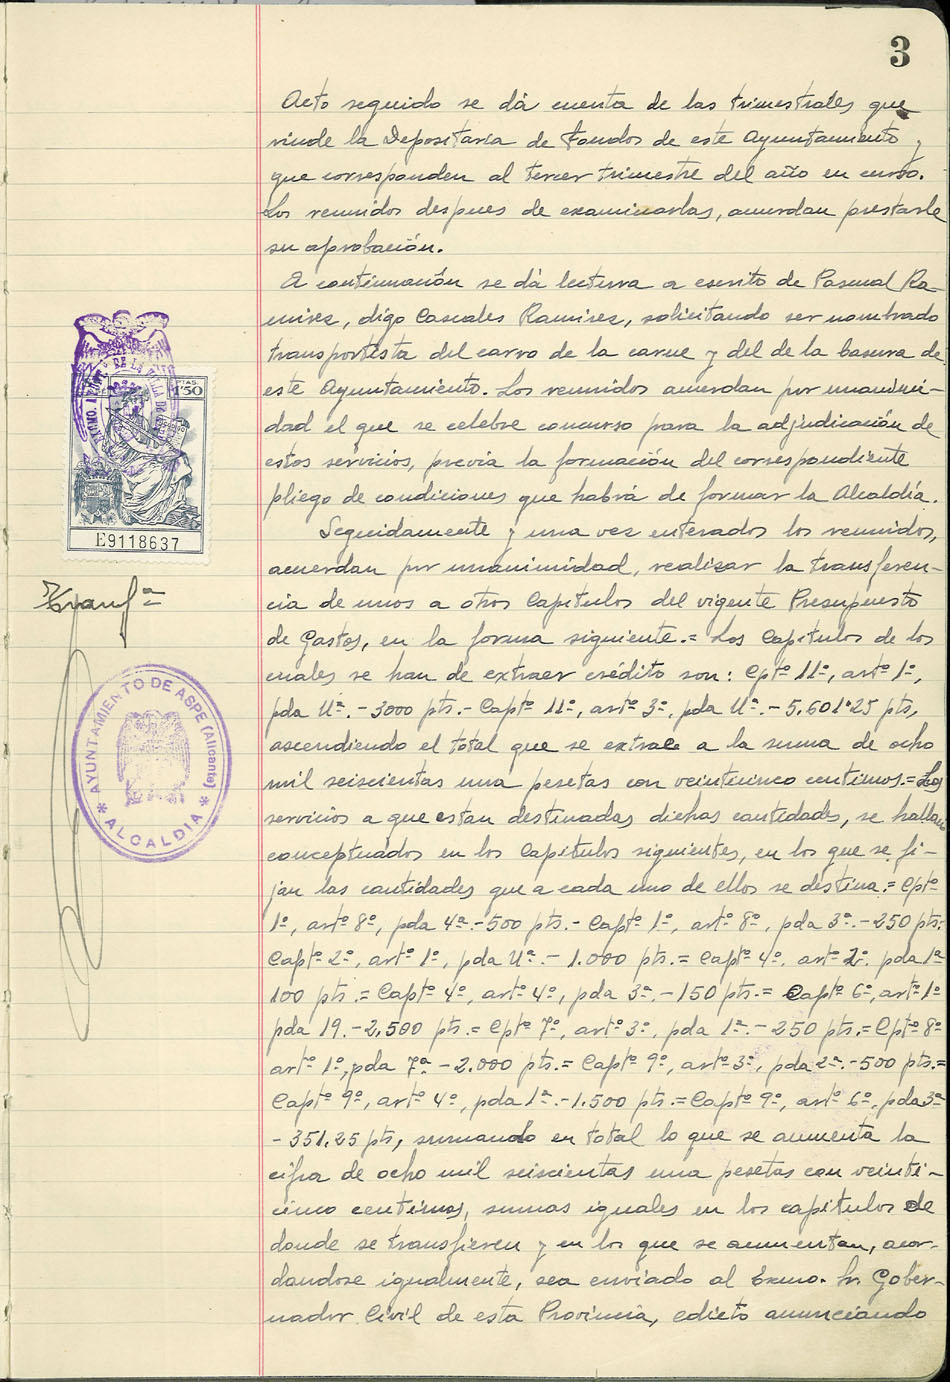 3
Acto seguido se dá cuenta de las trimestrales que
rinde la Depositaría de Fondos de este Ayuntamiento y
que corresponden al tercer trimestre del año en curso.
Los reunidos despues de examinarlas, acuerdan prestarle
su aprobación.
A continuación se dá lectura a escrito de Pascual Ra-
mirez, digo Cascales Ramirez, solicitando ser nombrado
transportista del carro de la carne y del de la basura de
este Ayuntamiento. Los reunidos acuerdan por unanimi-
dad el que se celebre concurso para la adjudicación de
estos servicios, previa la formación del correspondiente
pliego de condiciones que habrá de formar la Alcaldía.
Seguidamente y una vez enterados los reunidos,
acuerdan por unanimidad, realizar la transferen-
cia de unos a otros Capitulos del vigente Presupuesto
de Gastos, en la forma siguiente.= Los Capitulos de los
cuales se han de extraer crédito son: Cptº 11º, artº 1º,
pda Uª.- 3000 pts.- Captº 11º, artº 3º, pda Uª.- 5,601'25 pts,
ascendiendo el total que se extrae a la suma de ocho
mil seiscientas una pesetas con veinticinco centimos.= Los
servicios a que estan destinadas dichas cantidades, se hallan
conceptuados en los Capitulos siguientes, en los que se fi-
jan las cantidades que a cada uno de ellos se destina.= Cptº
1º, artº 8º, pda 4ª.-500 pts.- Captº 1º, artº 8º, pda 3ª.- 250 pts.
Captº 2º, artº 1º, pda Uª.- 1.000 pts.= Captº 4º, artº 2º. pda 1ª
100 pts.= Captº 4º, artº 4º, pda 3ª.-150 pts.= Captº 6º, artº 1º
pda 19.- 2,500 pts.= Cptº 7º, artº 3º, pda 1ª.- 250 pts.= Cptº 8º
artº 1º, pda 7ª - 2.000 pts.= Captº 9º, artº 3º, pda 2ª.-500 pts.=
Captº 9º, artº 4º, pda 1ª.-1.500 pts.= Captº 9º, artº 6º, pda 3ª
- 351,25 pts, sumando en total lo que se aumenta la
cifra de ocho mil seiscientas una pesetas con veinti-
cinco centimos, sumas iguales en los capitulos de
donde se transfieren y en los que se aumentan, acor-
dandose igualmente, sea enviado al Excmo. Sr. Gober-
nador Civil de esta Provincia, edicto anunciando
DE LA VILLA DE
1'50
E9118637
Transfª
AYUNTAMIENTO DE ASPE (Alicante)
* ALCALDIA *